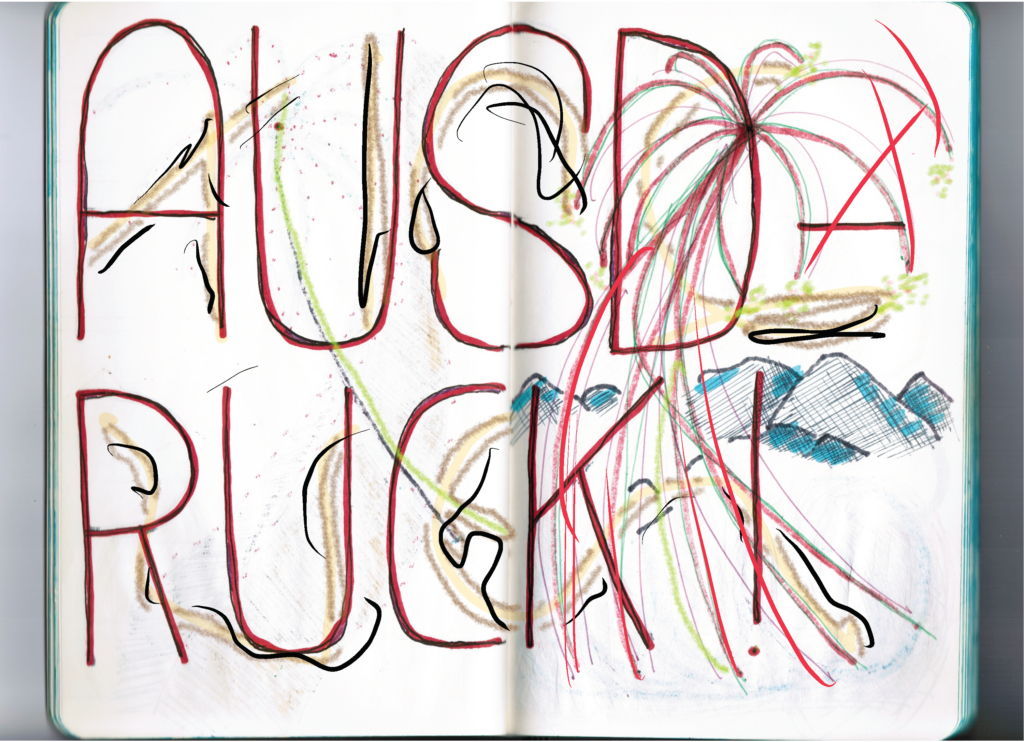 AUSD-
RUCK!